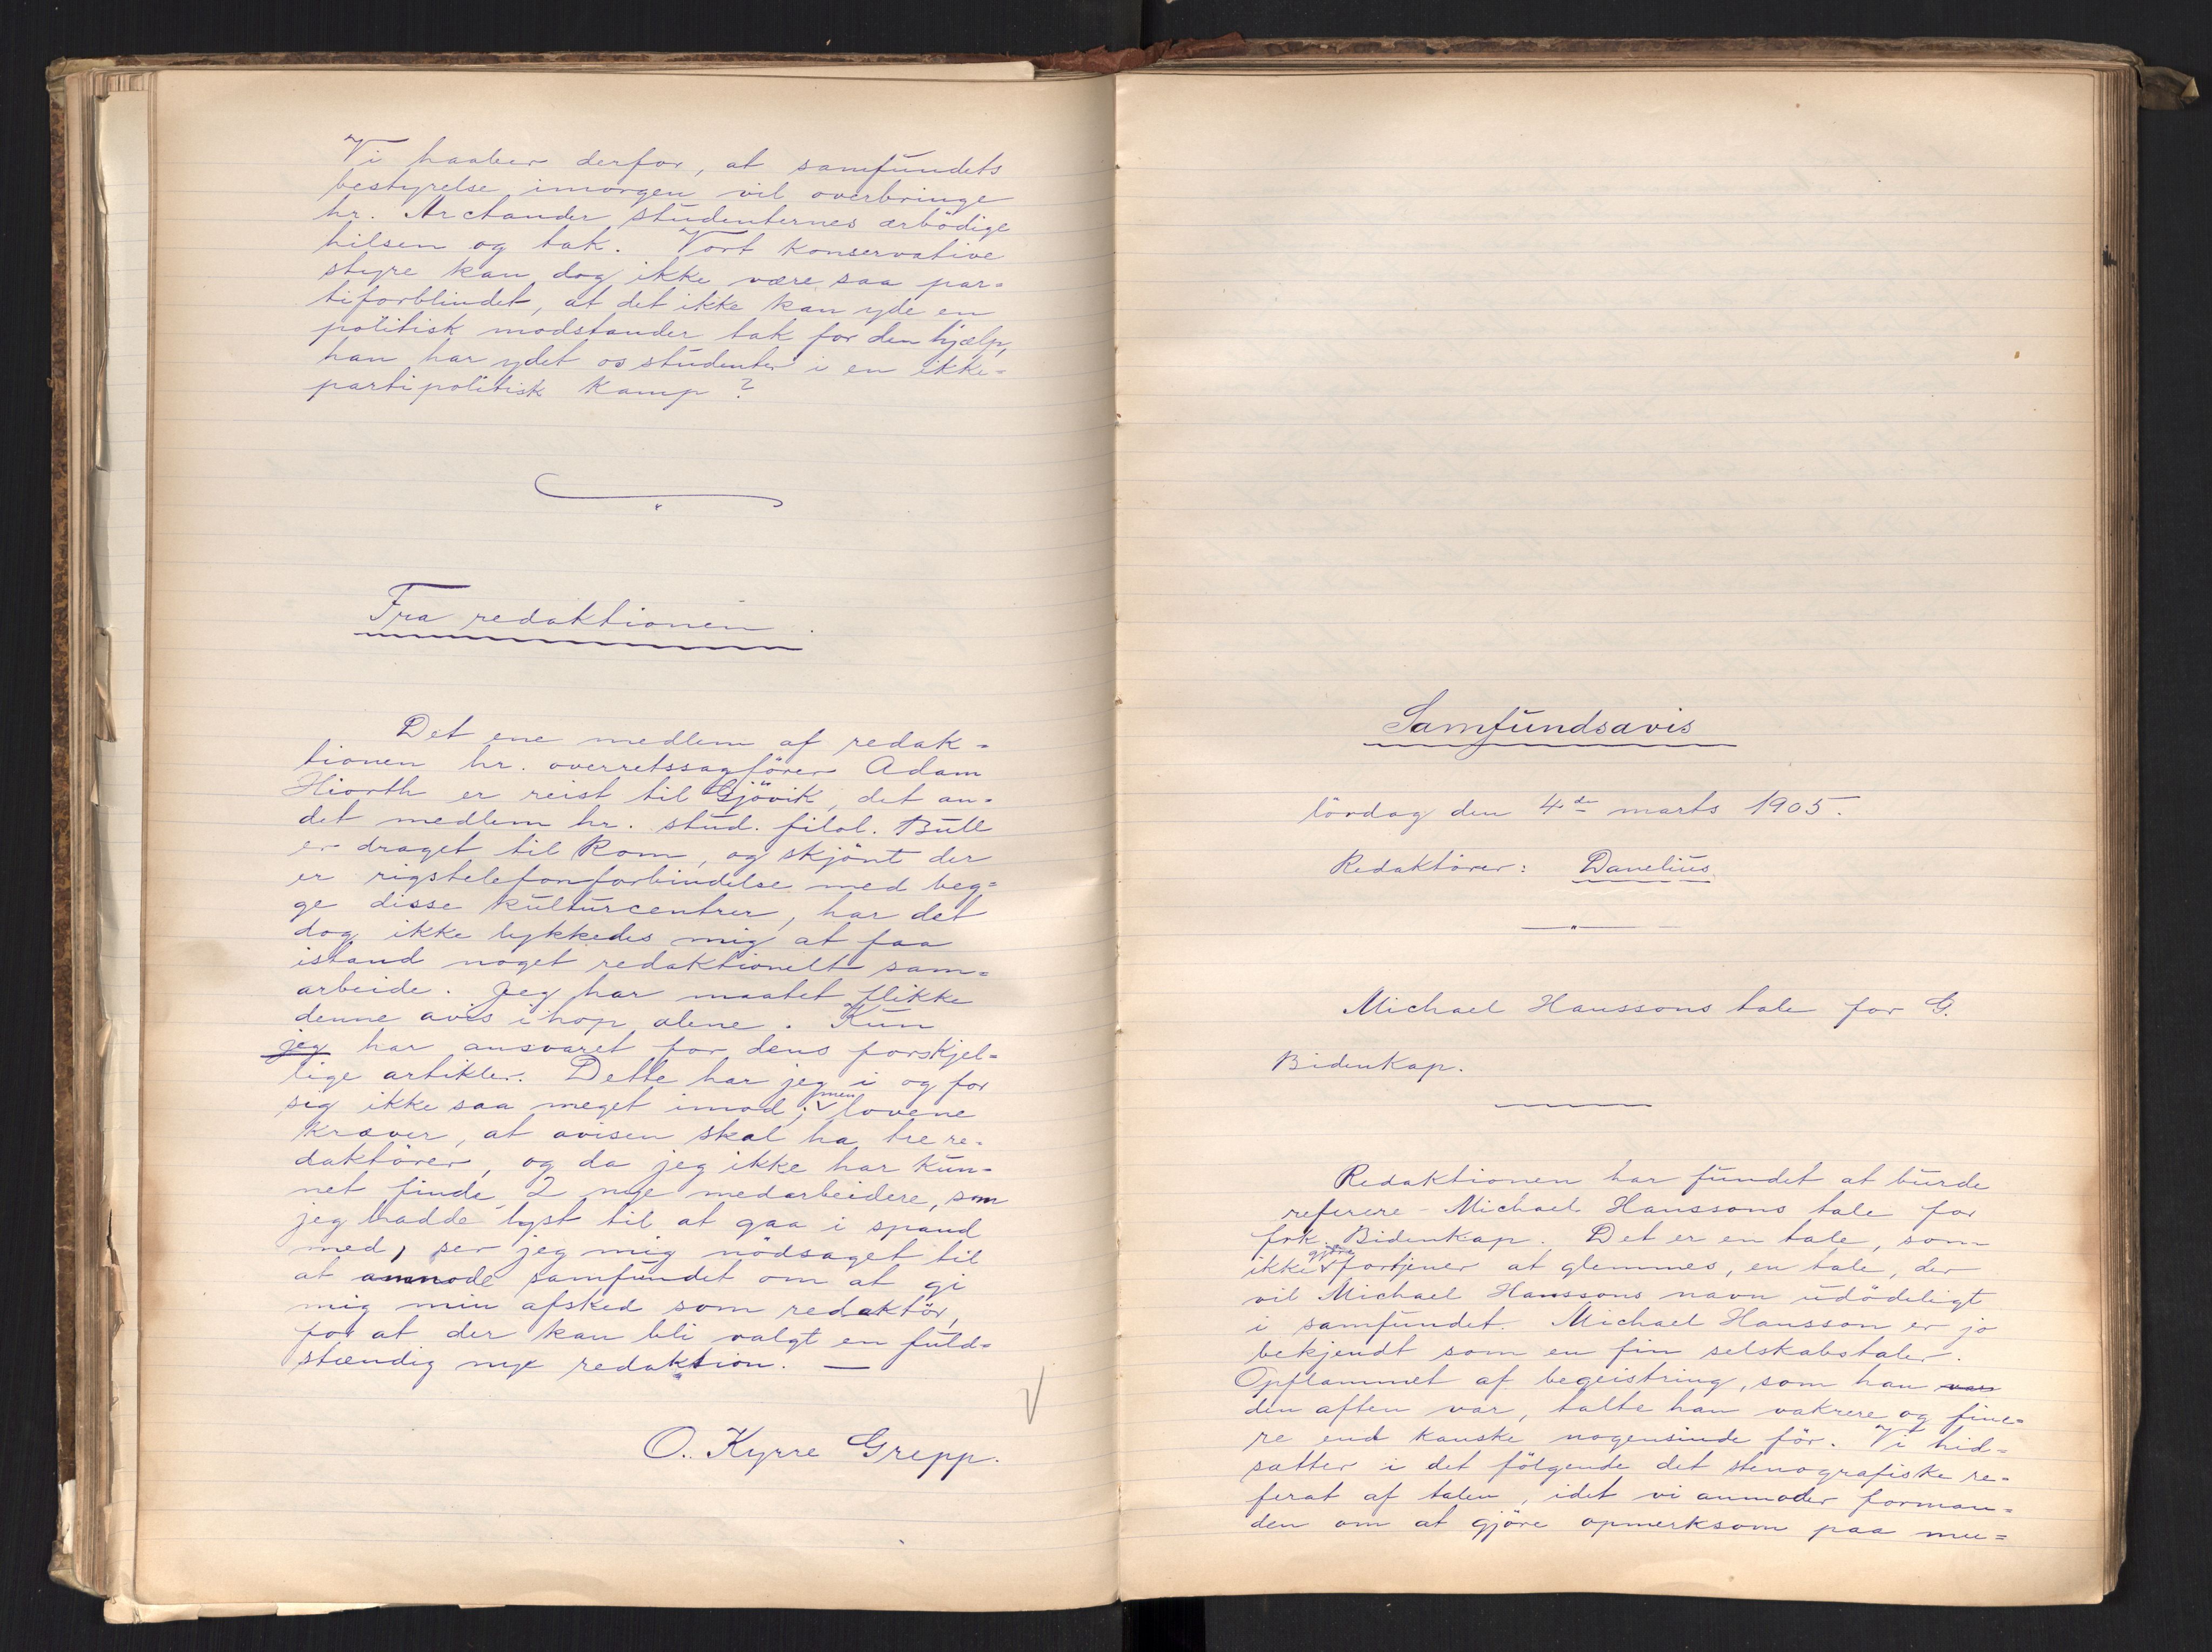 Vi haaber derfor, at samfundets
bestyrelse imorgen vil overbringe
hr. Arctander studenternes ærbödige
hilsen og tak. Vort konservative
styre kan dog ikke være saa par=
tiforblindet, at det ikke kan yde en
politisk modstander tak for den hjælp,
han har ydet os studenter i en ikke=
partipolitisk kamp?
Fra redaktionen.
Det ene medlem af redak=
tionen hr. overretssagförer Adam
Hiorth er reist til Gjövik, det an=
det medlem hr. stud. filol. Bull
er draget til Rom, og skjönt der
er rigstelefonforbindelse med beg=
ge disse kulturcentrer, har det
dog ikke lykkedes mig at faa
istand noget redaktionelt sam=
arbeide. Jeg har maatet flikke
denne avis ihop alene. Kun
jeg har ansvaret for dens forskjel=
lige artikler. Dette har jeg i og for
sig ikke saa meget imod; men lovene
kræver, at avisen skal ha tre re=
daktörer, og da jeg ikke har kun=
net finde 2 nye medarbeidere, som
jeg hadde lyst til at gaa i spand
med, ser jeg mig nödsaget til
at anmode samfundet om at gi
mig min afsked som redaktör,
for at der kan bli valgt en fuld=
stændig nye redaktion. —
O. Kyrre Grepp.
Samfundsavis
lördag den 4de marts 1905.
Redaktörer: Danelius.
Michael Hanssons tale for G.
Bidenkap.
Redaktionen har fundet at burde
referere Michael Hanssons tale for
frk. Bidenkap. Det er en tale, som
ikke fortjener at glemmes, en tale, der
vil gjöre Michael Hanssons navn udödeligt
i samfundet. Michael Hansson er jo
bekjendt som en fin selskabstaler.
Opflammet af begeistring, som han var
den aften var, talte han vakrere og fine=
re end kanske nogensinde för. Vi hid=
sætter i det fölgende det stenografiske re=
ferat af talen, idet vi anmoder forman=
den om at gjöre opmerksom paa mu=